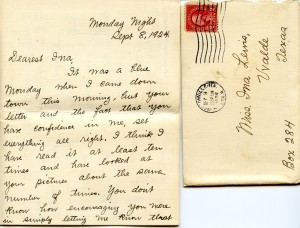 Monday Night
Sept 8, 1924.
Dearest Ina,
It was a blue
Monday when I came down
town this morning, but your
letter and the fact that you
have confidence in me, set
everything all right. I think I
have read it at least ten
times and have looked at
your pictures about the same
number of times. You don't
know how encouraging you were
in simply letting me know that
Miss. Ina Lewis,
Uvalde
Texas
Box 284